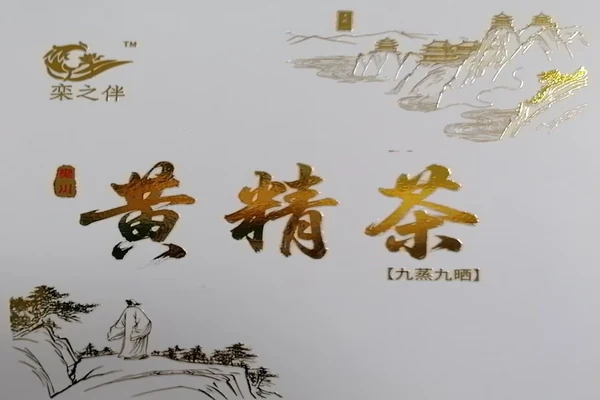 TM
栾之伴
栾川
黄精茶
【九蒸九晒】